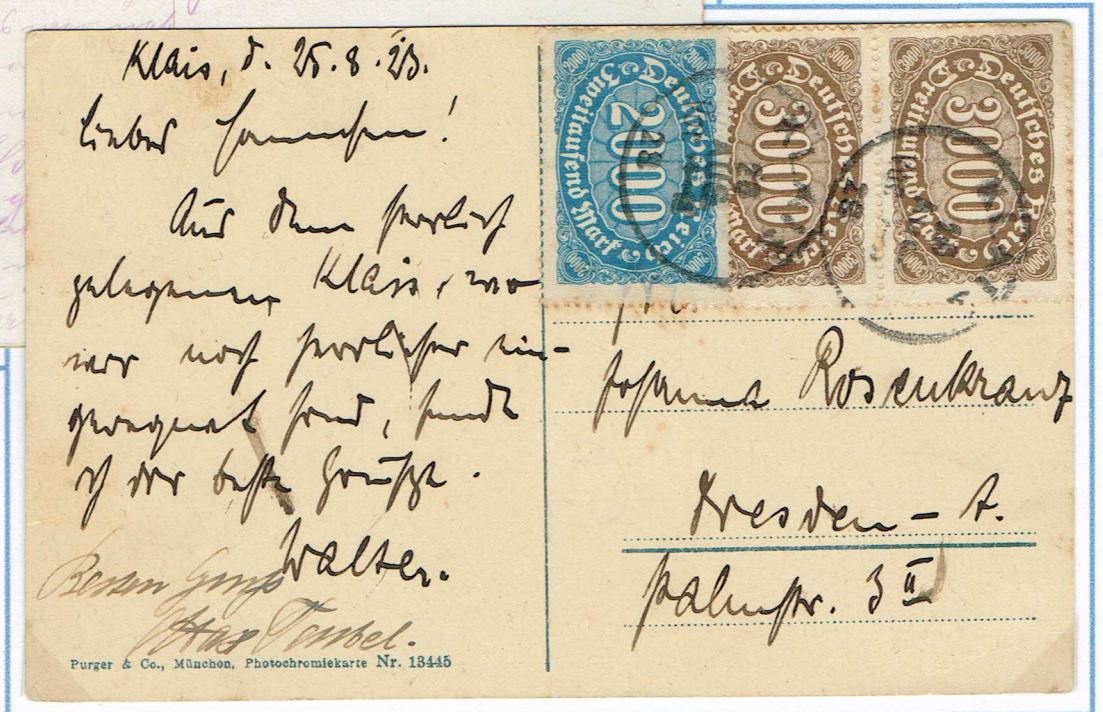 Klais, d. 25.8.23.
Liebes Hannchen!
Aus dem herrlich
gelegenen Klais, wo
wir noch herrlicher ein-
geregnet sind, sende
ich dir beste Grüße.
Walter.
Besten Gruß
Purger & Co., München, Photochromiekarte Nr. 13445
Deutsches Reich
2000
Zweitausend Mark
Deutsches Reich
3000
Mark
Deutsches Reich
3000
Dreitausend Mark
Johanna Rosenkranz
Dresden - A.
Palmstr. 3 II